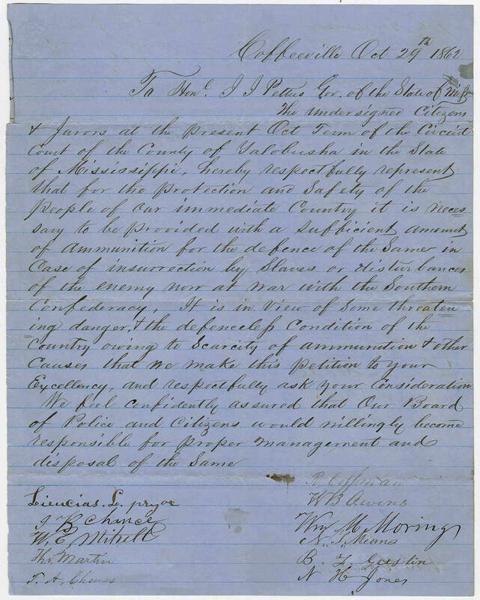 Coffeeville Oct 29th 1862
To Honl. J J Pettus Gov. of the State of Miss
The undersigned Citizens
& Jurors at the present Oct Term of the Circuit
Court of the County of Yalobusha in the State
of Mississippi, hereby respectfully represent
that for the protection and Safety of the
people of our immediate Country it is neces-
sary to be provided with a sufficient amount
of Ammunition for the defence of the Same in
Case of insurrection by Slaves or disturbances
of the enemy now at war with the Southern
Confederacy, It is in View of Some threaten
ing danger, & the defenceless Condition of the
Country owing to Scarcity of ammunition & other
Causes that we make this petition to your
Excellency, and respectfully ask your Consideration
We feel confidently assured that Our Board
of Police and Citizens would willingly become
responsible for proper management and
disposal of the Same
Coffman
Lieucias. L. pryor
W B Owens
J B Chance
Wm M. Moring
W. E. Mitchell
N. J. Means
Thos. Martin
B. F. Gustin
T. A.
N H Jones